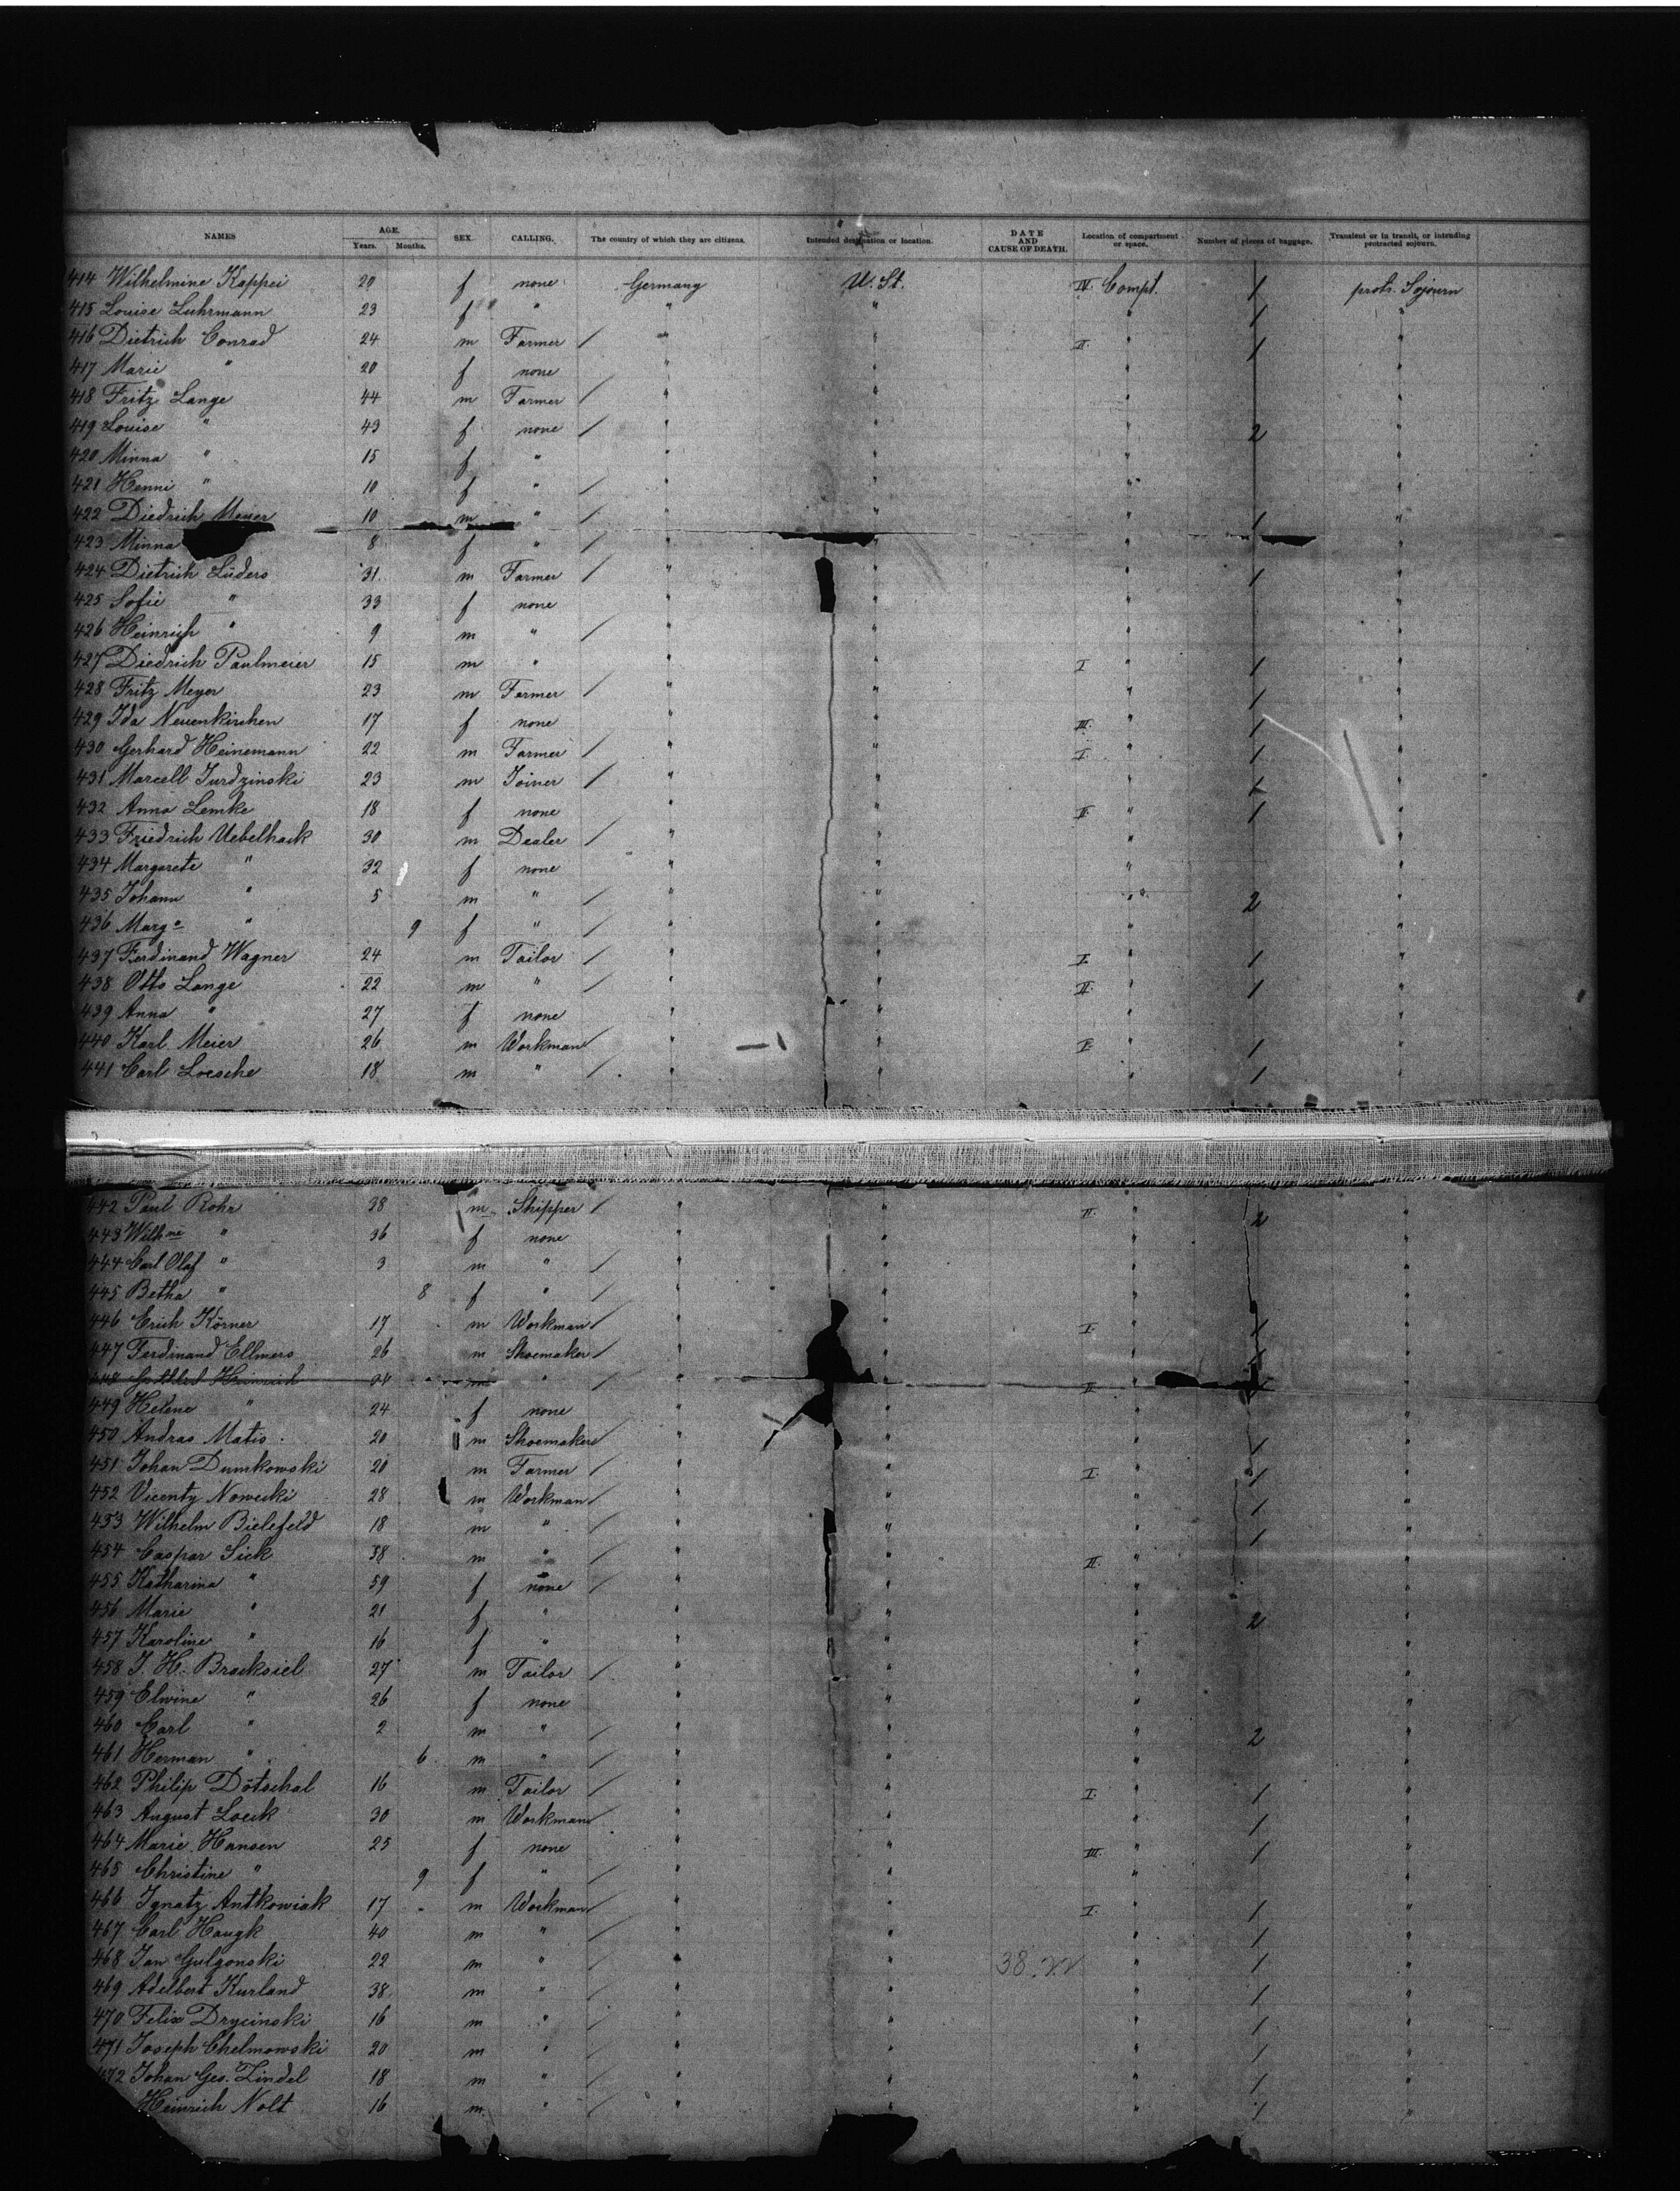 NAMES AGE. Years. Months. SEX. CALLING. The country of which they are citizens. Intended destination or location. DATE AND CAUSE OF DEATH. Location of compartment or space. Number of pieces of baggage. Transient or in transit, or intending protracted sojourn.
414 Wilhelmine Kappei 20 f none Germany U. St. IV. Compt. 1 protr. Sojourn
415 Louise Luhrmann 23 f " " " " 1 "
416 Dietrich Conrad 24 m Farmer / " " II. " 1 "
417 Marie " 20 f none " " " "
418 Fritz Lange 44 m Farmer / " " " "
419 Louise " 43 f none / " " " 2 "
420 Minna " 15 f " " " " "
421 Henni " 10 f " / " " " "
422 Diedrich Meyer 10 m " / " " " 1 "
423 Minna 8 f " / " " " "
424 Dietrich Lüders 31 m Farmer / " " " 1 "
425 Sofie " 33 f none " " " "
426 Heinrich " 9 m " / " " " "
427 Diedrich Paulmeier 15 m " " " I " 1 "
428 Fritz Meyer 23 m Farmer / " " " 1 "
429 Ida Neuenkirchen 17 f none " " III. " 1 "
430 Gerhard Heinemann 22 m Farmer / " " I. " 1 "
431 Marcell Jurdzinski 23 m Joiner / " " " 1 "
432 Anna Lemke 18 f none " " II. " 1 "
433 Friedrich Uebelhack 30 m Dealer / " " " "
434 Margarete " 32 f none " " " "
435 Johann " 5 m " / " " " 2 "
436 Marg.e " 9 f " / " " " "
437 Ferdinand Wagner 24 m Tailor / " " I. " 1 "
438 Otto Lange 22 m " / " " II. " 1 "
439 Anna " 27 f none " " " "
440 Karl Meier 26 m Workman / " " I. " 1 "
441 Carl Loesche 18 m " / " " " 1 "
442 Paul Rohr 38 m Shipper / " " II. " 2 "
443 Wilhne " 36 f none " " " "
444 Carl Olaf " 3 m " / " " " "
445 Betha " 8 f " / " " " "
446 Erich Körner 17 m Workman / " " I. " 1 "
447 Ferdinand Ellmers 26 m Shoemaker / " " 1 "
448 Gottlieb Heinrich m " / " II "
449 Helene " 24 f none " " " "
450 Andras Matis 20 m Shoemaker / " " " 1 "
451 Johan Dumkowski 20 m Farmer / " " I. " 1 "
452 Vicenty Nowicki 28 m Workman / " " " 1 "
453 Wilhelm Bielefeld 18 m " / " " " 1 "
454 Caspar Sick 58 m " / " " II. " "
455 Katharina " 59 f none / " " " "
456 Marie " 21 f " " " " 2 "
457 Karoline " 16 f " " " " "
458 J. H. Bracksiel 27 m Tailor / " " " "
459 Elwine " 26 f none " " " "
460 Carl " 2 m " / " " " 2 "
461 Herman " 6 m " / " " " "
462 Philip Dötschal 16 m Tailor / " " I. " 1 "
463 August Loeck 30 m Workman / " " " 1 "
464 Marie Hansen 25 f none " " III. " 1 "
465 Christine " 9 f " / " " " "
466 Ignatz Antkowiak 17 m Workman / " " I. " 1 "
467 Carl Haugk 40 m " / " " " 1 "
468 Jan Gulgonski 22 m " / " " " 1 "
469 Adelbert Kurland 38 m " / " " " 1 "
470 Felix Drycinski 16 m " / " " " 1 "
471 Joseph Chelmowski 20 m " / " " " 1 "
472 Johan Geo. Zindel 18 m " / " " " 1 "
Heinrich Nolt 16 m " / " " " 1 "